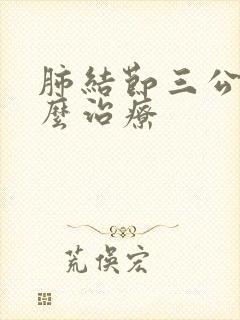 肺結節三公
麼治療
荒俁宏